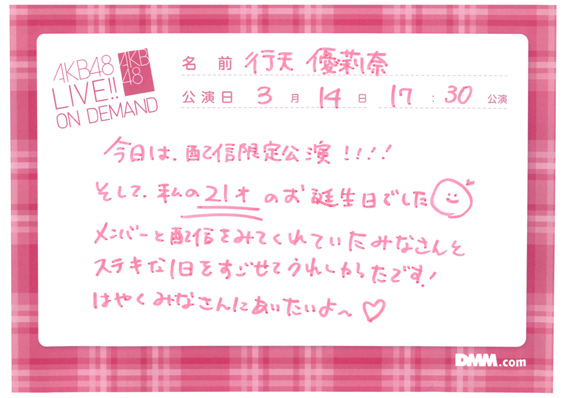 AKB48
LIVE!!
ON DEMAND
AKB
48
名 前 行天 優莉奈
公演日 3 月 14 日 17 : 30 公演
今日は、配信限定公演!!!!
そして、私の21才のお誕生日でした
メンバーと配信をみてくれていたみなさんと
ステキな1日をすごせてうれしかったです!
はやくみなさんにあいたいよ〜♡
DMM.com